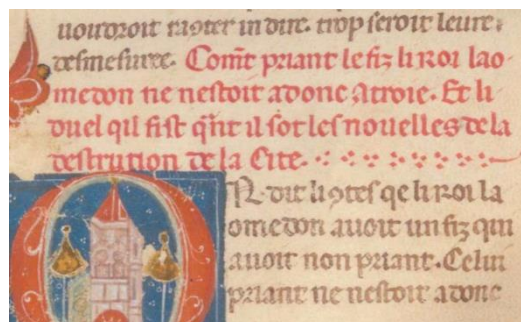 uoudroit ꝯter in dire. trop seroit leure.
desmesuree. Com̃t priant le fiz li roi lao
medon ne nestoit adonc a troie. Et li
duel qil fist qñt il sot les nouelles de la
destrution de la Cite.
N dit li ꝯtes qe li roi la
omedon auoit un fiz qui
auoit non priant. Celui
priant ne nestoit adonc